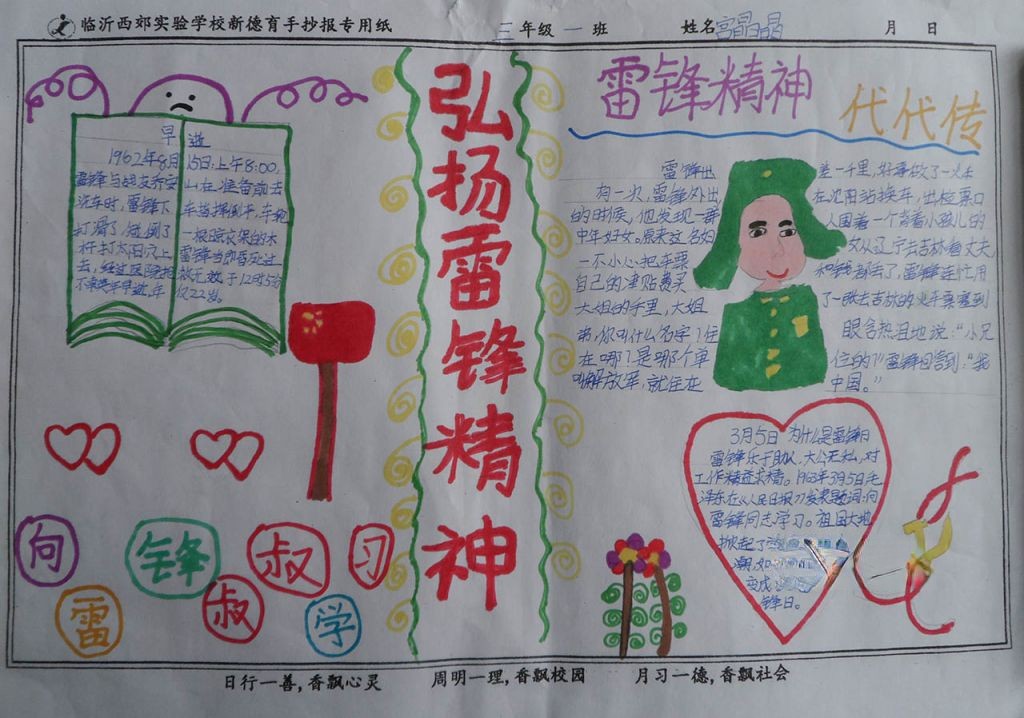 临沂西郊实验学校新德育手抄报专用纸 三年级一班 姓名宫晶晶 月 日
弘扬雷锋精神
雷锋精神
代代传
早逝
1962年8月15日:上午8:00,
雷锋与战友乔安山在准备前去
洗车时,雷锋下车指挥倒车,车轮
打滑了,碰倒了一根晾衣架的木
杆打太阳穴上,雷锋当即昏死过
去,经过医院抢救无效于12时5分
仅22岁。
雷锋出差一千里,好事做了一火车
有一次,雷锋外出在沈阳站换车,出检票口
的时候,他发现一群人围着一个背着小孩儿的
中年妇女。原来这名妇女从辽宁去吉林看丈夫
一不小心把车票和钱都丢了,雷锋连忙用
自己的津贴费买了一张去吉林的火车票塞到
大姐的手里,大姐眼含热泪地说:“小兄
弟,你叫什么名字!住
在哪?是哪个单位的?”雷锋回答到:“我
叫解放军,就住在中国。”
3月5日为什么是雷锋日
雷锋乐于助人,大公无私,对
工作精益求精。1963年3月5日毛
泽东在《人民日报》发表题词:向
雷锋同志学习。祖国大地
掀起了
潮,
变成
锋日。
向雷锋叔叔学习
日行一善,香飘心灵 周明一理,香飘校园 月习一德,香飘社会